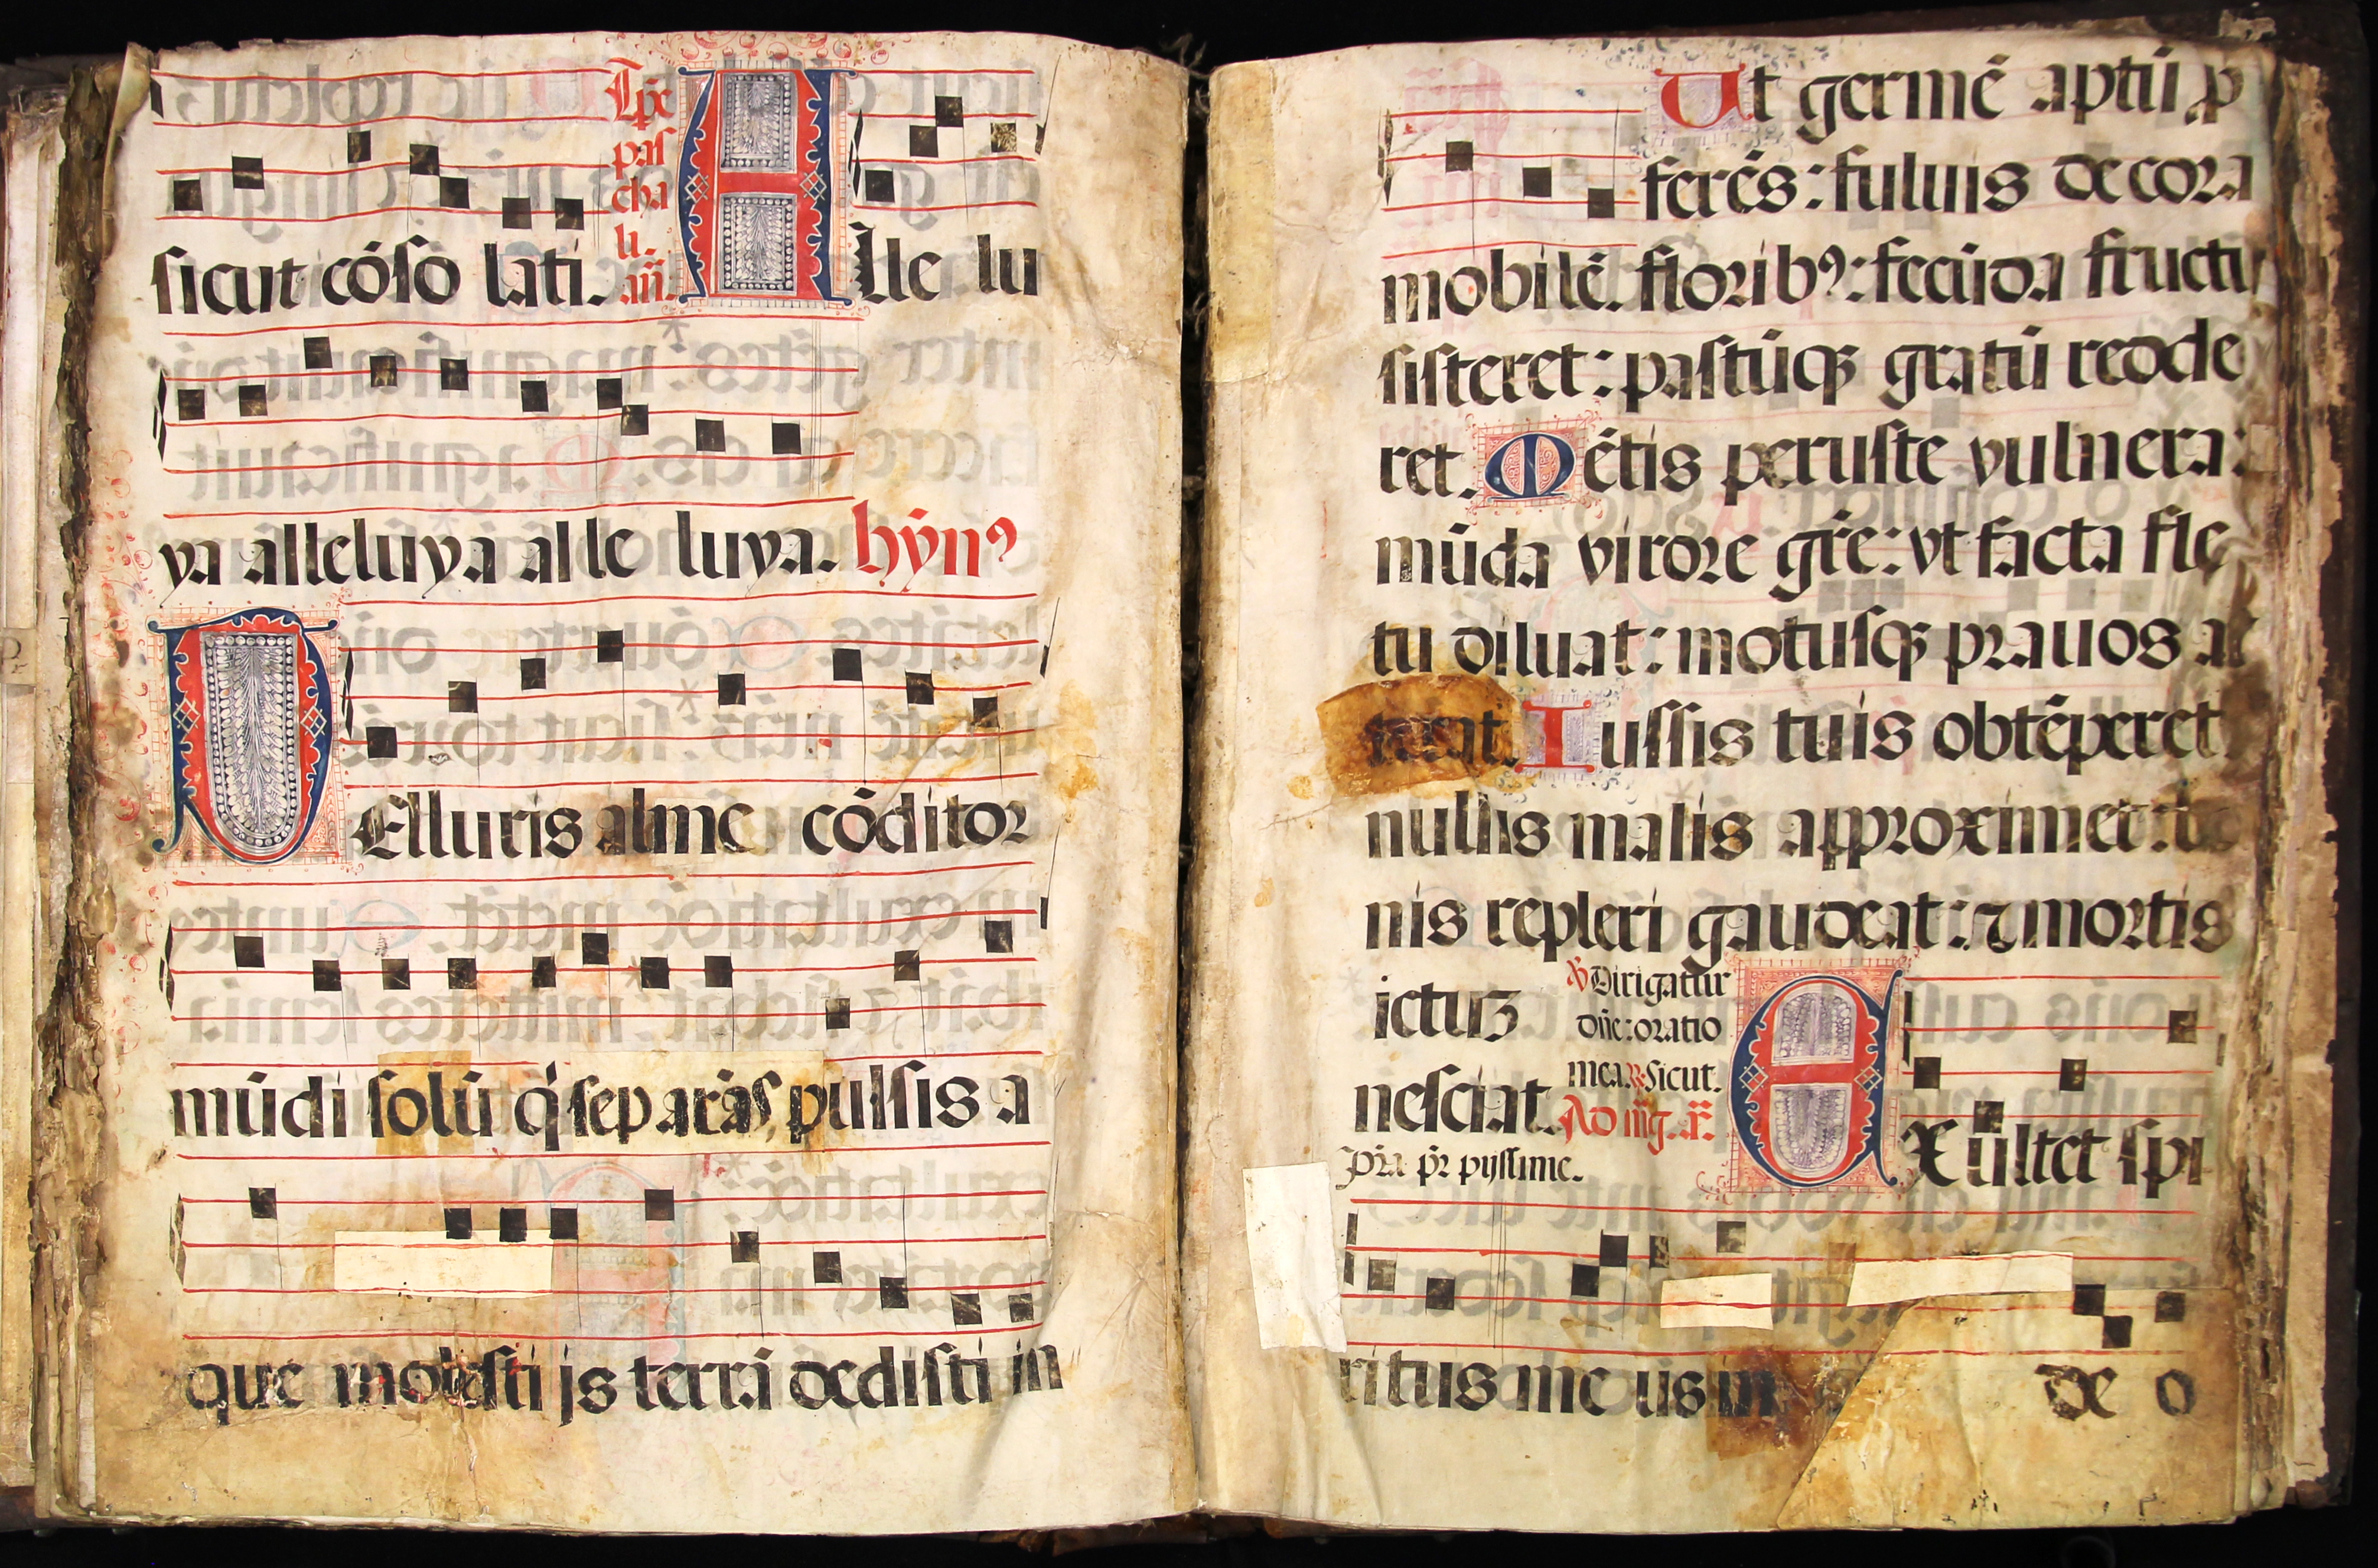 sicut cōsō lati. Tp̄e pas cha li. añ. Alle lu
ya alleluya alle luya. hỹn⁹
TElluris alme cōditor
mūdi solū q̇ separās pulsis a
que molesti js terrā dedisti in
Ut germē aptū p
ferēs: fuluis decora
mobilē. florib⁹: fecūda fructu
sisteret: pastūqꝫ gratū redde
ret. Mētis peruste vulnera:
mūda virore gr̄e: vt facta fle
tu diluat: motusqꝫ prauos at
terat. Iussis tuis obtēperet
nullis malis approximet: bo
nis repleri gaudeat: ⁊ mortis
ictuꝫ
nesciat.
℣ Dirigatur
dn̄e: oratio
mea. ℟ Sicut.
Ad mg. añ.
Pr̄a pr̄ pijssime.
EXultet spi
ritus me us in de o